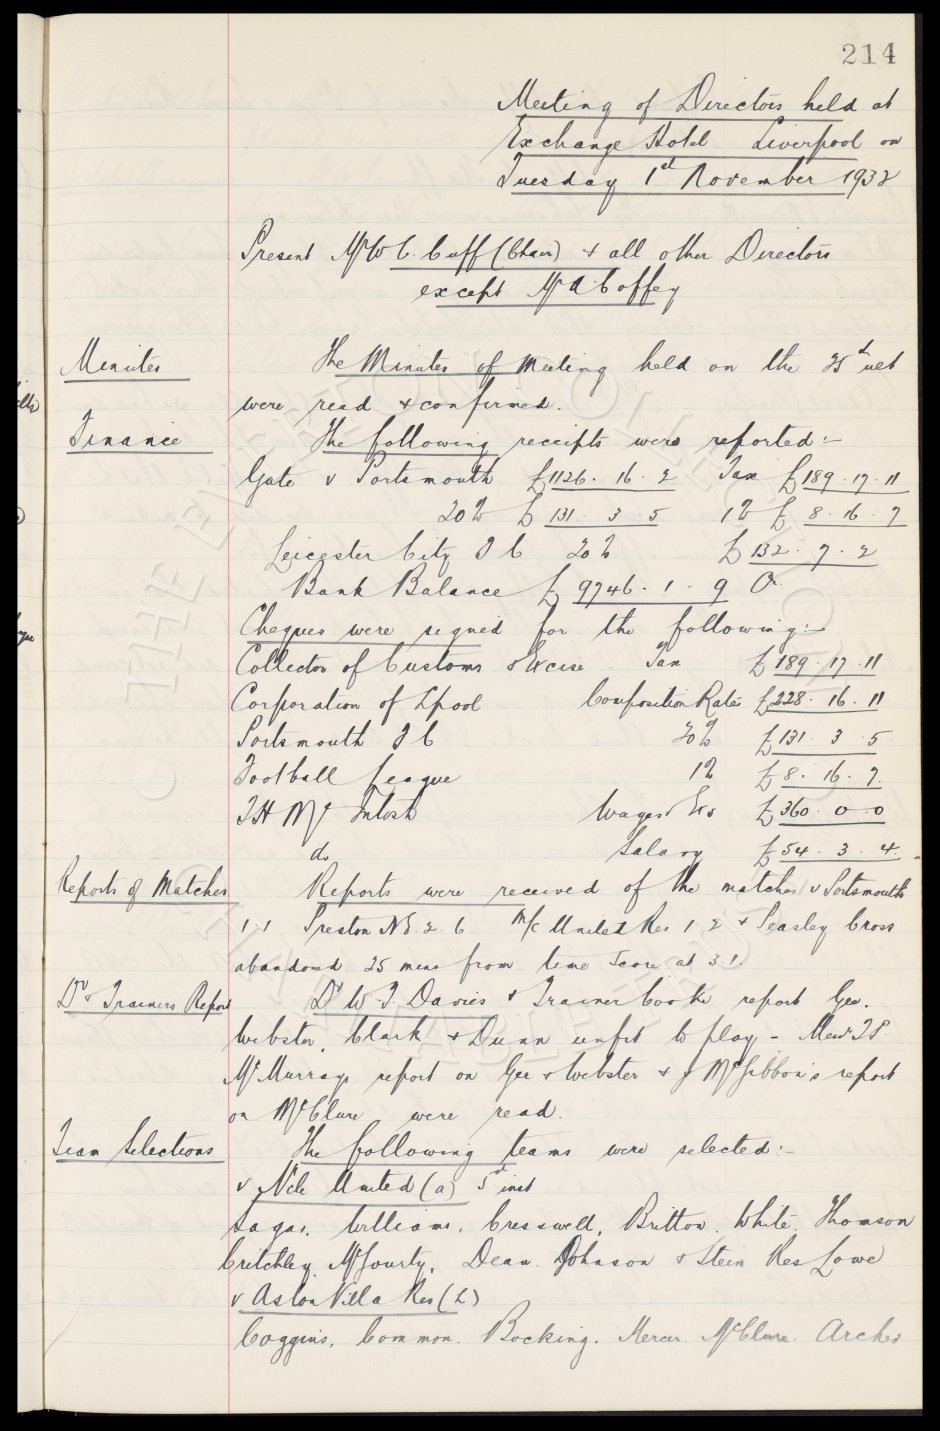 214
Meeting of Directors held at
Exchange Hotel Liverpool on
Tuesday 1st November 1932
Present Mr W C. Cuff (Chair) & all other Directors
except Mr A Coffey
Minutes The Minutes of Meeting held on the 25th ult
were read & confirmed.
Finance The following receipts were reported:-
Gate v Portsmouth £1126. 16. 2 Tax £189. 17. 11
20% £131. 3. 5 1% £8. 16. 7
Leicester City F C 20% £132. 7. 2
Bank Balance £9746. 1. 9 Cr.
Cheques were signed for the following:-
Collector of Customs & Excise Tax £189. 17. 11
Corporation of Lpool Composition Rates £228. 16. 11
Portsmouth F C 20% £131. 3. 5
Football League 1% £8. 16. 7.
T H Mc Intosh Wages &c £360. 0. 0
do Salary £54. 3. 4.
Reports of Matches Reports were received of the matches v Portsmouth
1.1 Preston N.E. 2. 6 M/c United Res 1. 2 & Peasley Cross
abandoned 25 mins from time Score at 3.1.
Dr & Trainers Report Dr W. J. Davies & Trainer Cooke report Gee.
Webster, Clark & Dunn unfit to play - T P.
McMurrays report on Gee & Webster & J McGibbon's report
on McClure were read.
Team Selections The following teams were selected:-
v N'cle United (a) 5th inst
Sagar. Williams. Cresswell, Britton. White. Thomson
Critchley. McGourty, Dean. Johnson & Stein Res Lowe
v Aston Villa Res (H)
Coggins, Common. Bocking. Mercer. McClure. Archer